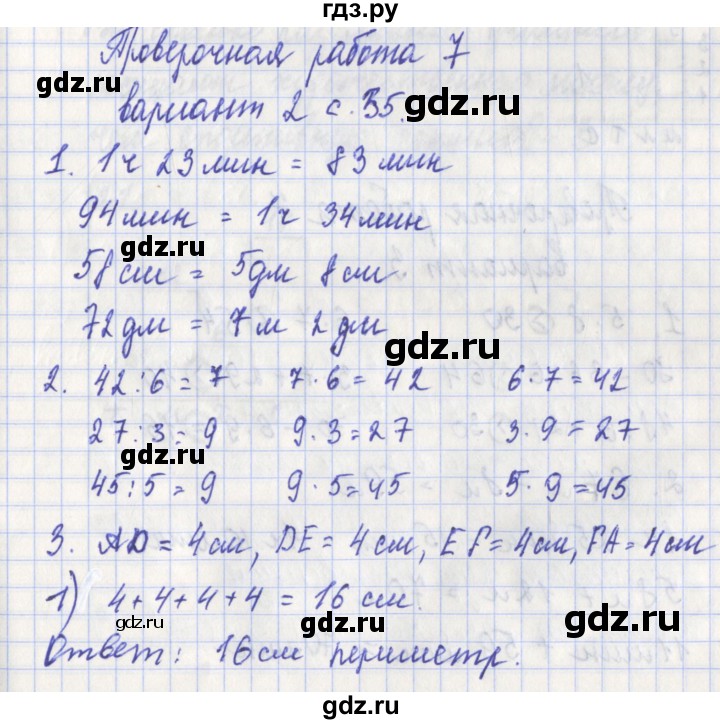 гдз.ру
Проверочная работа 7
gdz.ru gdz.ru
вариант 2 с. 35.
1. 1ч 23 мин = 83 мин
94 мин = 1ч 34 мин
gdz.ru gdz.ru
58 см = 5 дм 8 см
72 дм = 7 м 2 дм
gdz.ru
2. 42 : 6 = 7 7 · 6 = 42 6 · 7 = 42
27 : 3 = 9 9 · 3 = 27 3 · 9 = 27
gdz.ru gdz.ru
45 : 5 = 9 9 · 5 = 45 5 · 9 = 45
gdz.ru
3. AD = 4 см, DE = 4 см, EF = 4 см, FA = 4 см
1) 4 + 4 + 4 + 4 = 16 см.
gdz.ru gdz.ru
Ответ: 16 см периметр.
gdz.ru